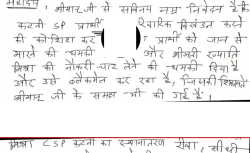 महोदय, श्रीमान् जी से सविनय नम्र निवेदन है कि
कटनी SP प्रार्थी रिवारिक विखंडन करने
की कोशिश कर प्रार्थी को जान से
मारने की धमकी और श्रीमती ख्याति
मिश्रा की नौकरी खाट लेने की धमकी दिया है
और उसे ब्लैकमेल कर रहा है, जिसकी शिकायत
श्रीमान् जी के समक्ष की गई है।
मिश्रा CSP कटनी का स्थानांतरण रीवा, सीधी